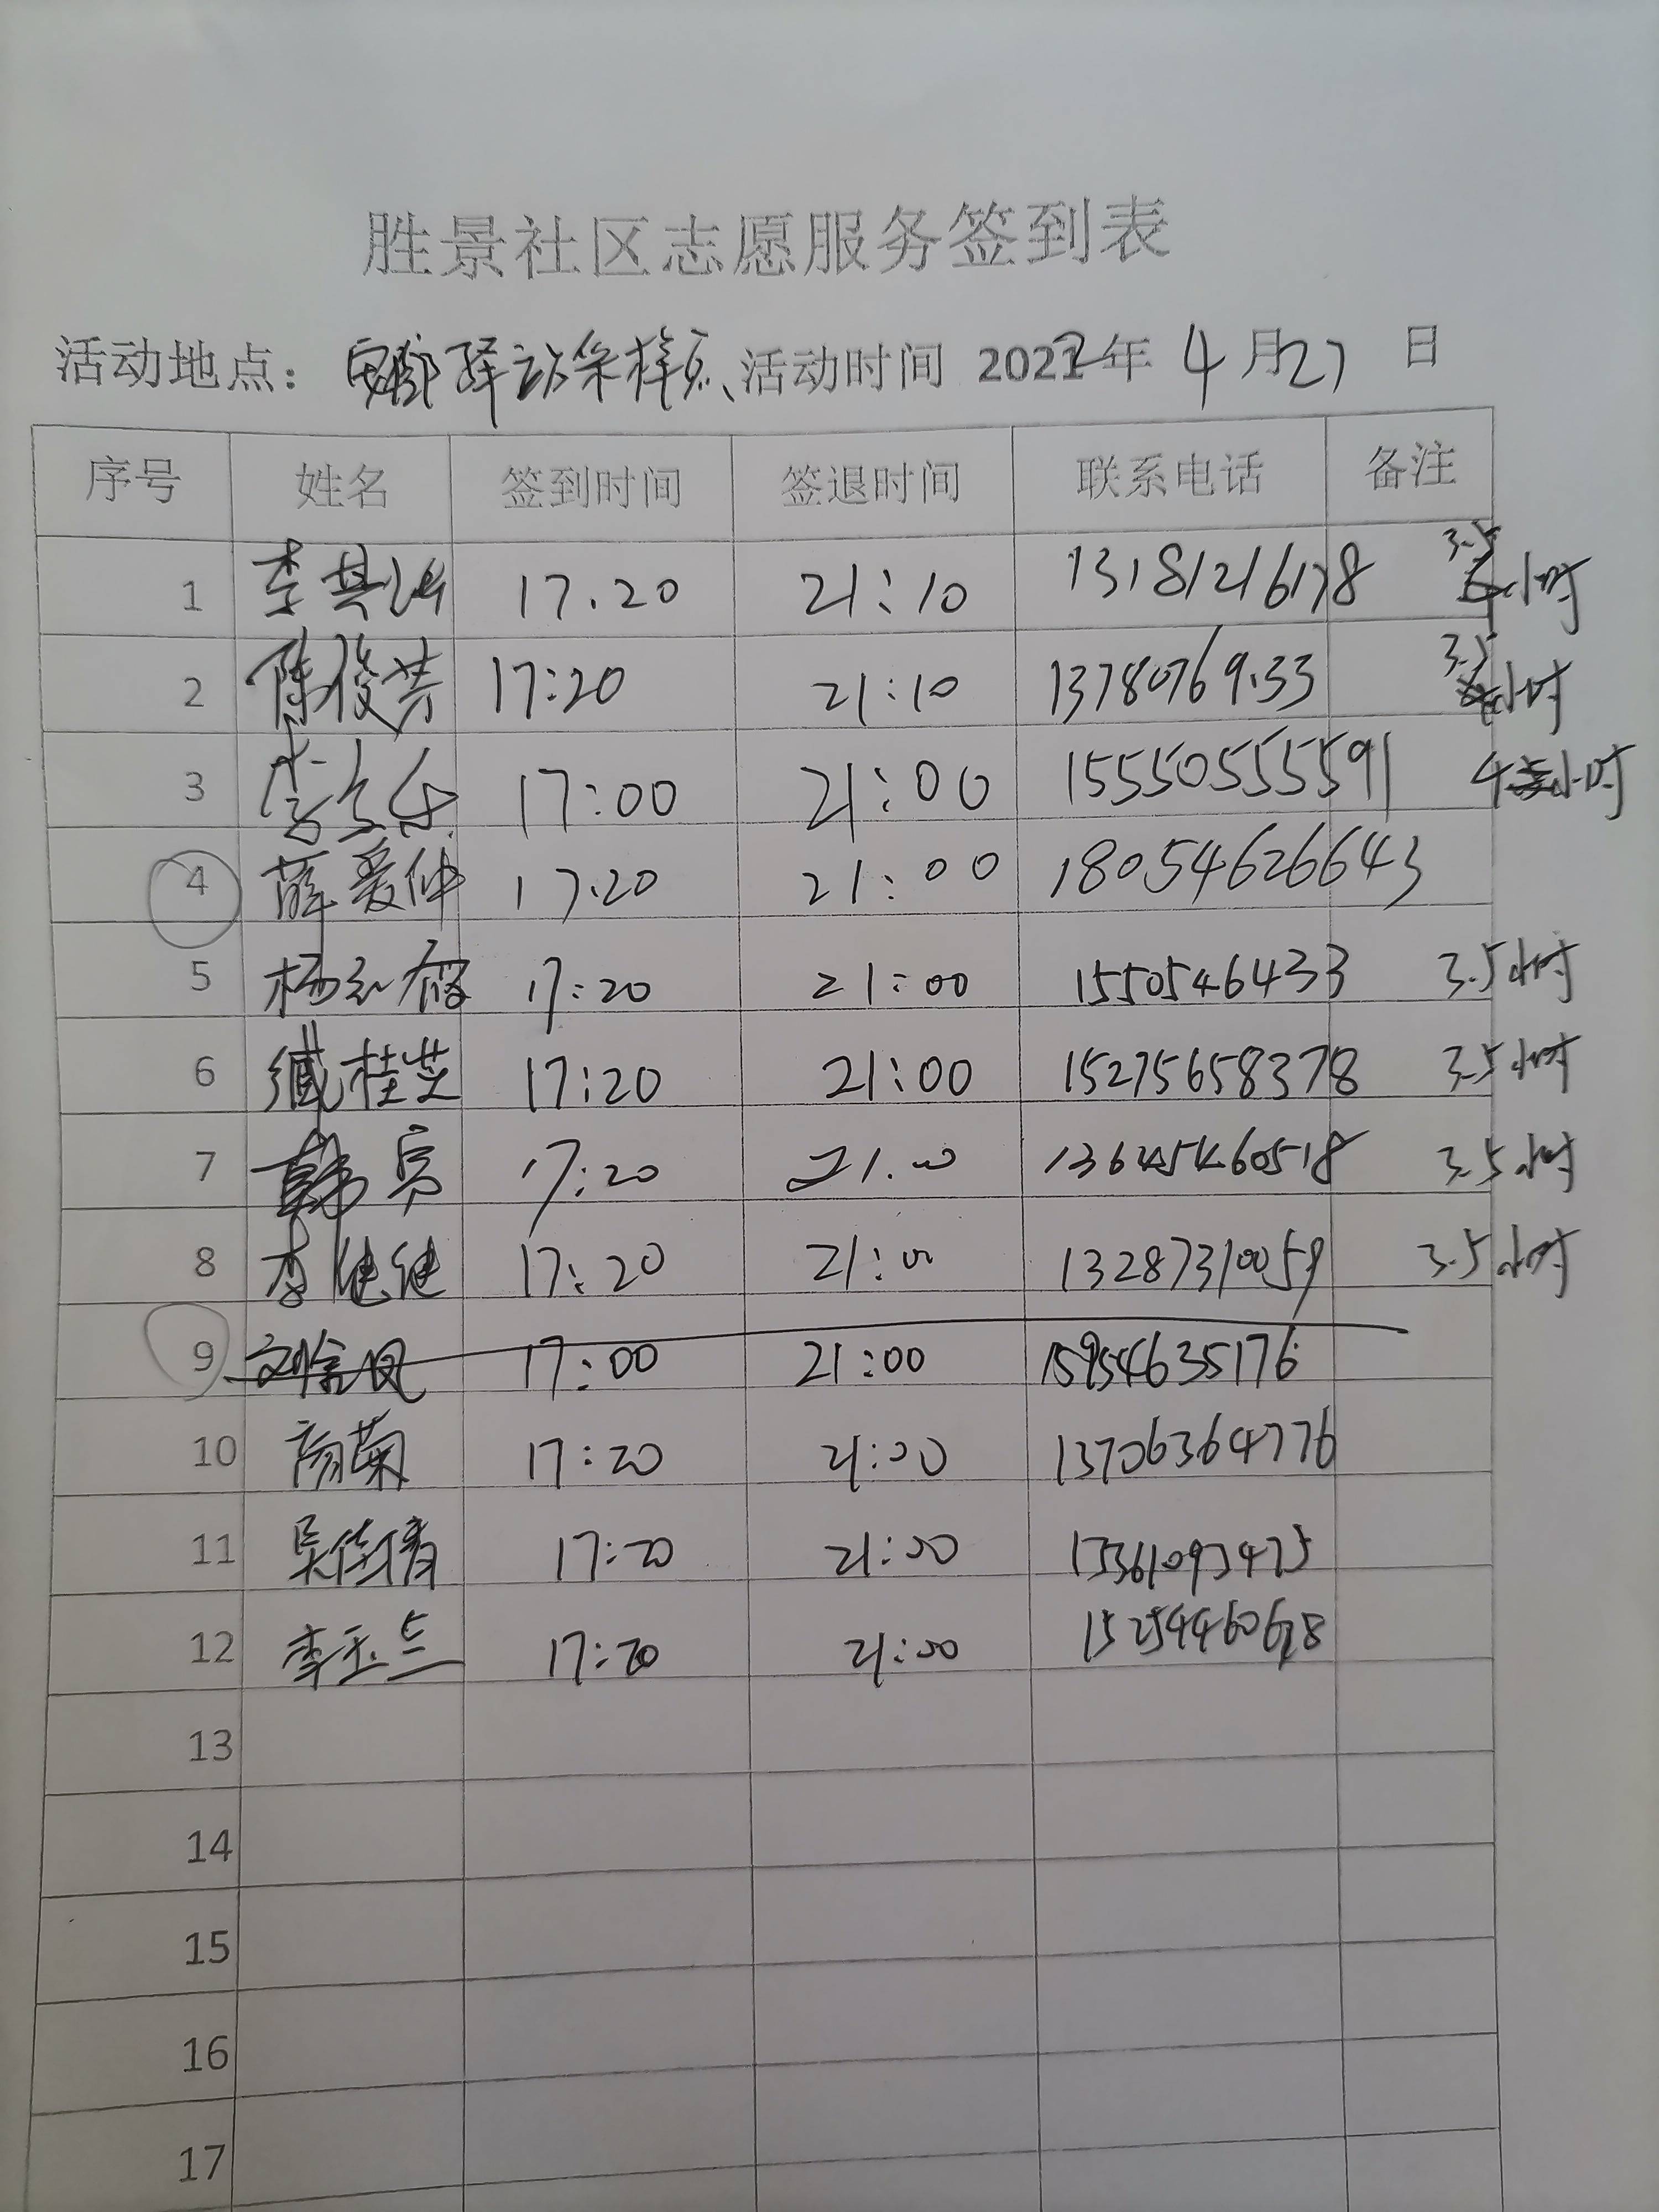 胜景社区志愿服务签到表
活动地点：驿站采样点、活动时间 2022年 4月27日
序号 姓名 签到时间 签退时间 联系电话 备注
1 李其 17.20 21:10 13181216178 3.5小时
2 陈俊芳 17:20 21:10 13780769.33 3.5小时
3 17:00 21:00 15550555591 4小时
4 薛爱仲 17.20 21:00 18054626643
5 杨 17:20 21:00 1550546433 3.5小时
6 臧桂芝 17:20 21:00 15275658378 3.5小时
7 韩亮 17:20 21.00 3.5小时
8 李继继 17:20 21:00 13287310059 3.5小时
9 刘金凤 17:00 21:00 15954635176
10 菊 17:20 21:00 13706364776
11 吴倩 17:20 21:00 13361093475
12 李玉兰 17:20 21:00 15254460628
13
14
15
16
17